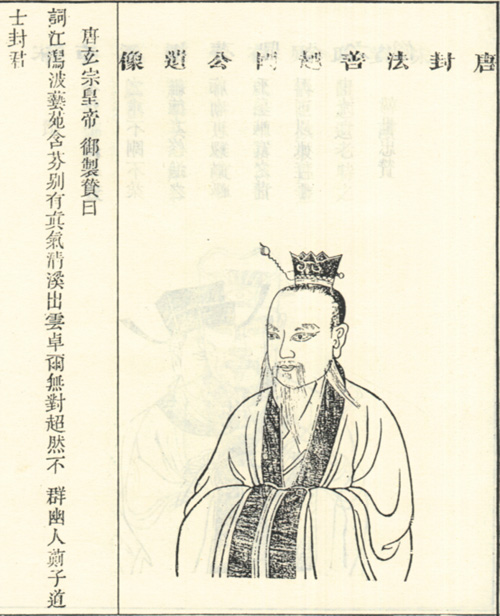 唐封法善越國公遺像
唐玄宗皇帝 御製贊曰
詞江瀉波藝苑含芬別有真氣清溪出雲卓爾無對超然不 群幽人薊子道
士封君